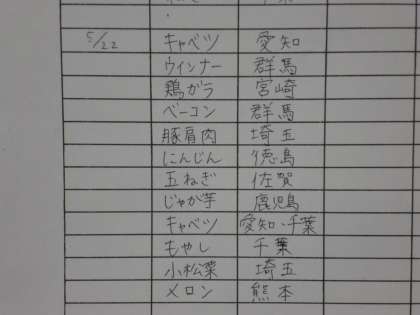 5/22 キャベツ 愛知
ウィンナー 群馬
鶏ガラ 宮崎
ベーコン 群馬
豚肩肉 埼玉
にんじん 徳島
玉ねぎ 佐賀
じゃが芋 鹿児島
キャベツ 愛知・千葉
もやし 千葉
小松菜 埼玉
メロン 熊本